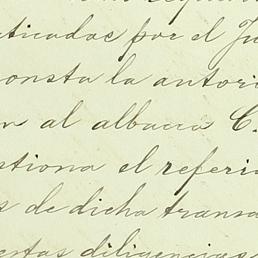 ticadas por el Ju
consta la autori
n al albacea C.
stiona el referi
s de dicha transa
estas diligencias